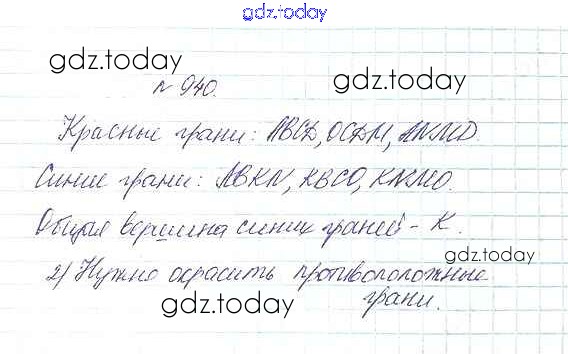 gdz.today
gdz.today
gdz.today
№ 940.
Красные грани: ABCD, OCDM, ANMD.
Синие грани: ABKN, KBCO, KNMO.
Общая вершина синих граней - K.
gdz.today
2) Нужно окрасить противоположные
грани.
gdz.today